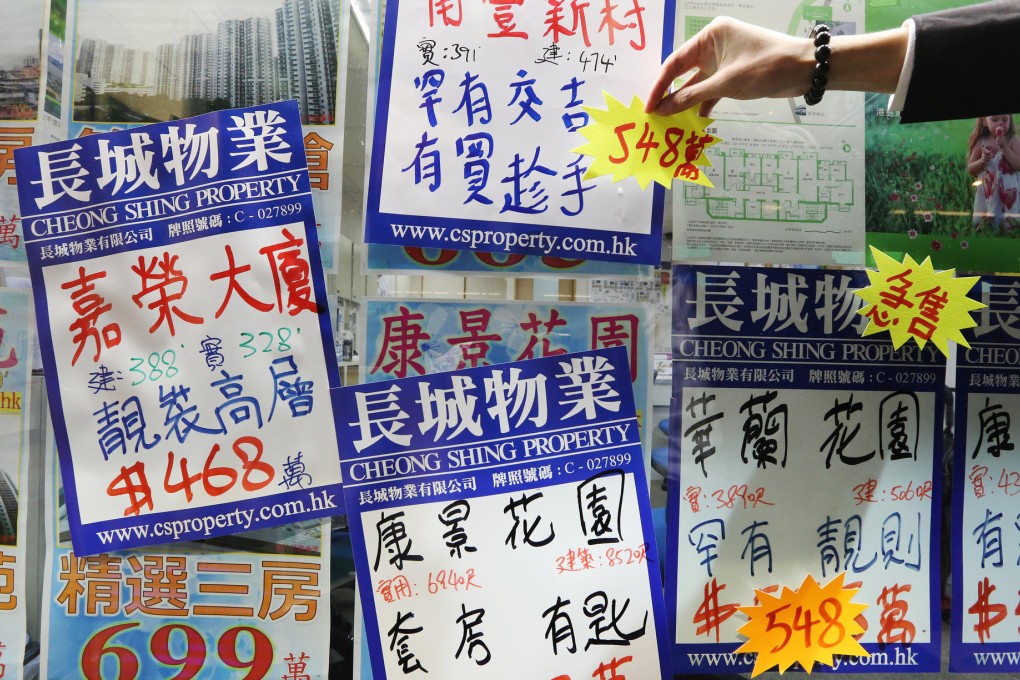 長城物業
CHEONG SHING PROPERTY
長城物業有限公司 牌照號碼：C - 027899
嘉榮大廈
建：388' 實 328'
靚裝高層
$468萬
www.csproperty.com.hk
精選三房
699萬
南豐新村
實：391' 建：474'
罕有交吉
有買趁手
548萬
www.csproperty.com.hk
康景花園
長城物業
CHEONG SHING PROPERTY
長城物業有限公司 牌照號碼：C - 027899
康景花園
實用：684呎 建築：852呎
套房 有匙
急售
長城物業
CHEONG SHING PROPERTY
長城物業有限公司 牌照號碼：C - 027899
華蘭花園
實：389呎 建：506呎
罕有 靚則
$548萬
www.csproperty.com.hk
長
CHEO
長城物業
康
實：43
有
$
www